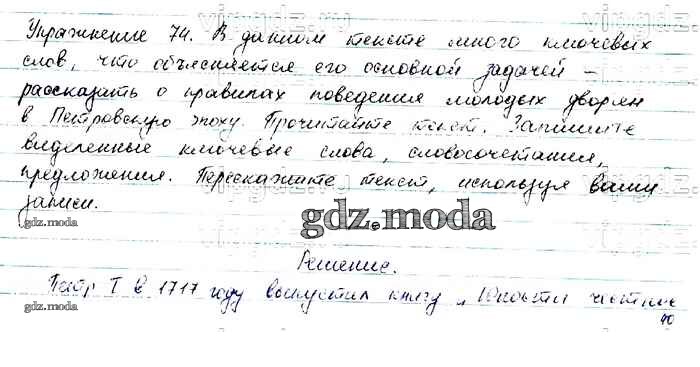 Упражнение 74. В данном тексте много ключевых
слов, что объясняется его основной задачей –
рассказать о правилах поведения молодых дворян
в Петровскую эпоху. Прочитайте текст. Запишите
выделенные ключевые слова, словосочетания,
предложения. Перескажите текст, используя ваши
записи.
gdz.moda
gdz.moda
Решение.
Петр I в 1717 году выпустил книгу „Юности честное
gdz.moda
40